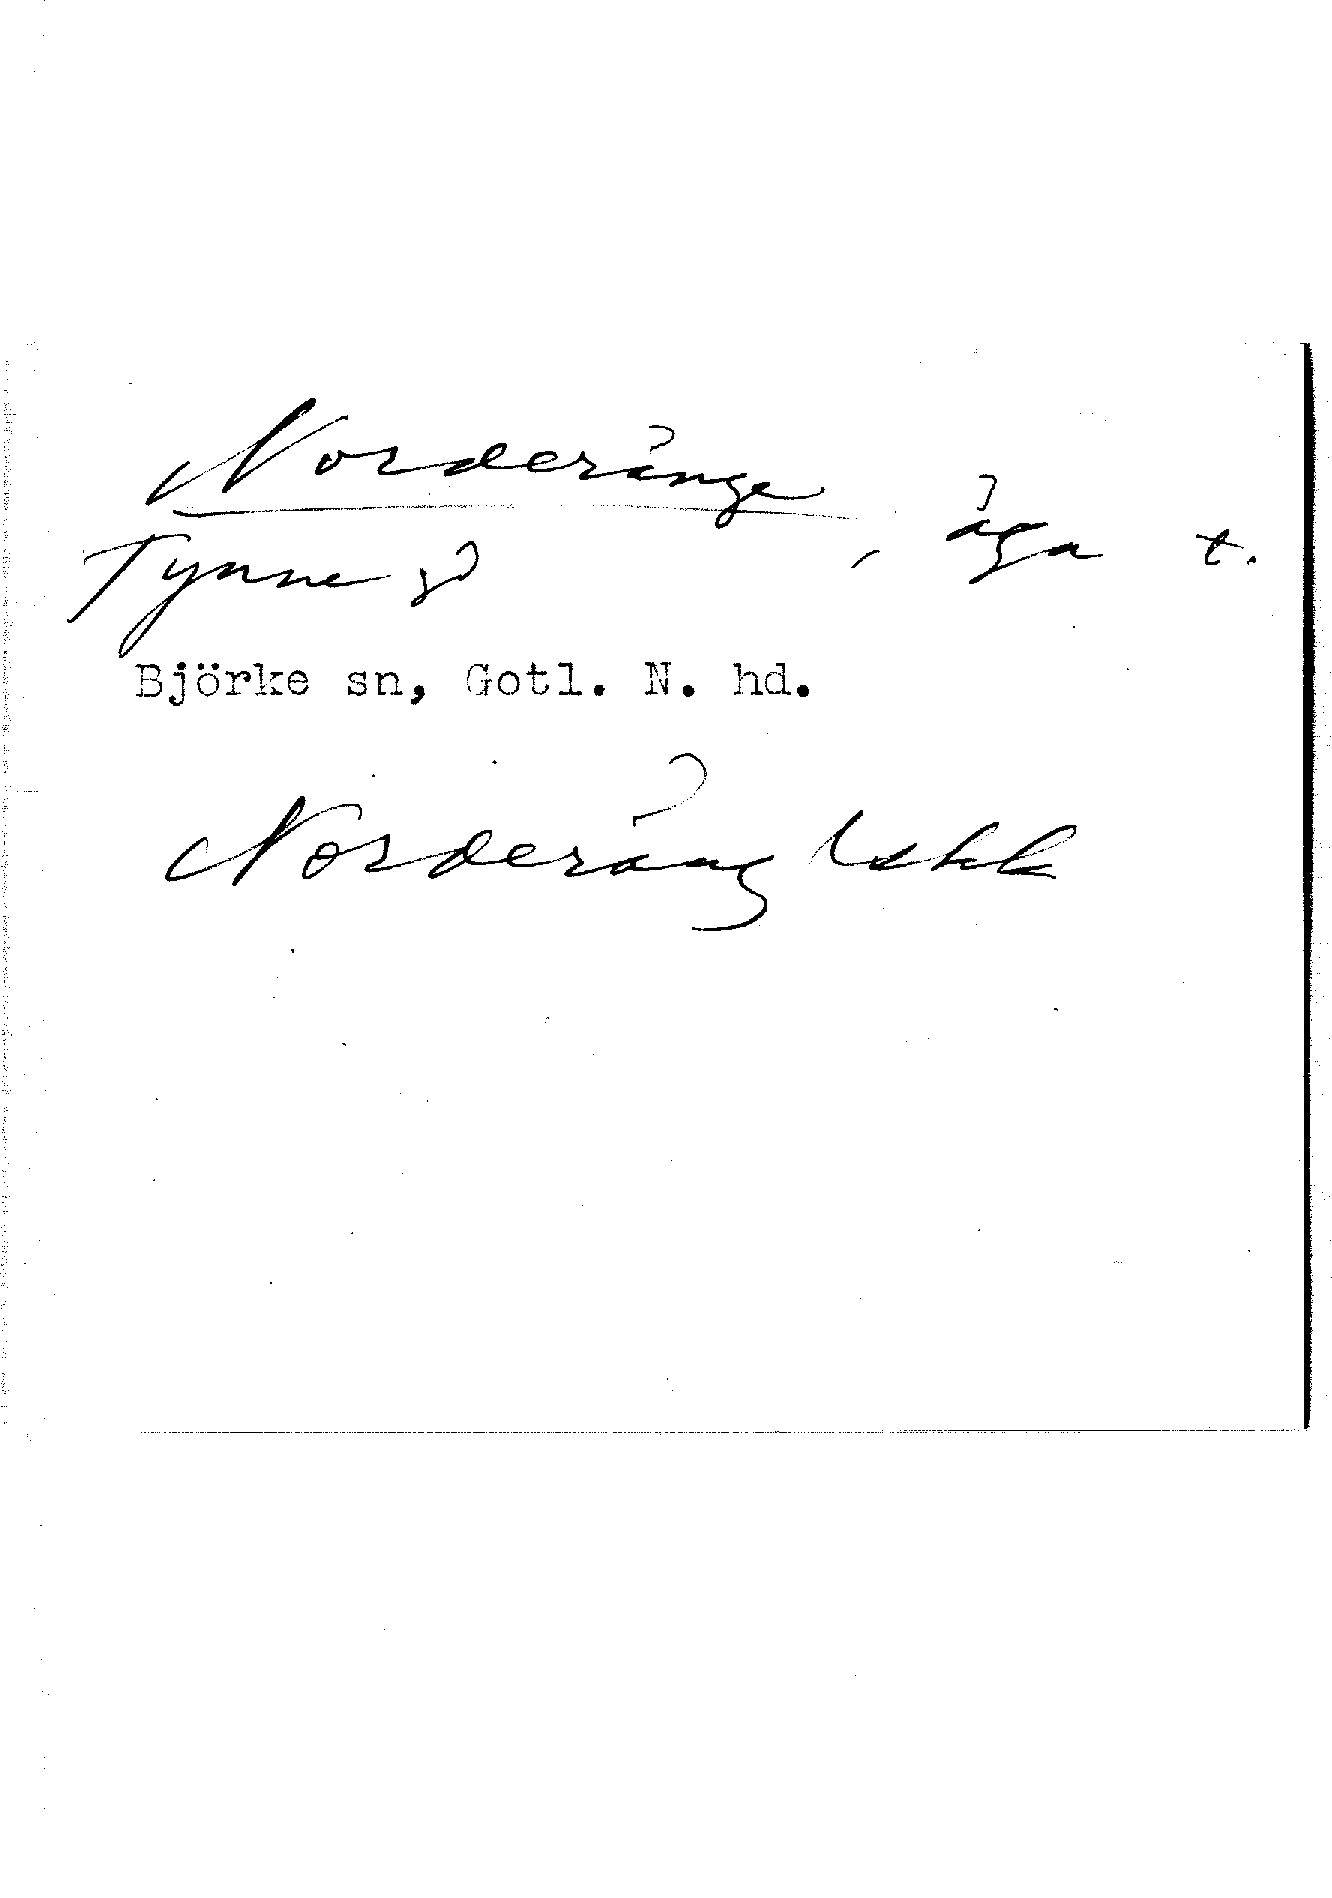 Norderänge, äga t.
Tynne gd
Björke sn, Gotl. N. hd.
Norderäng Lskk